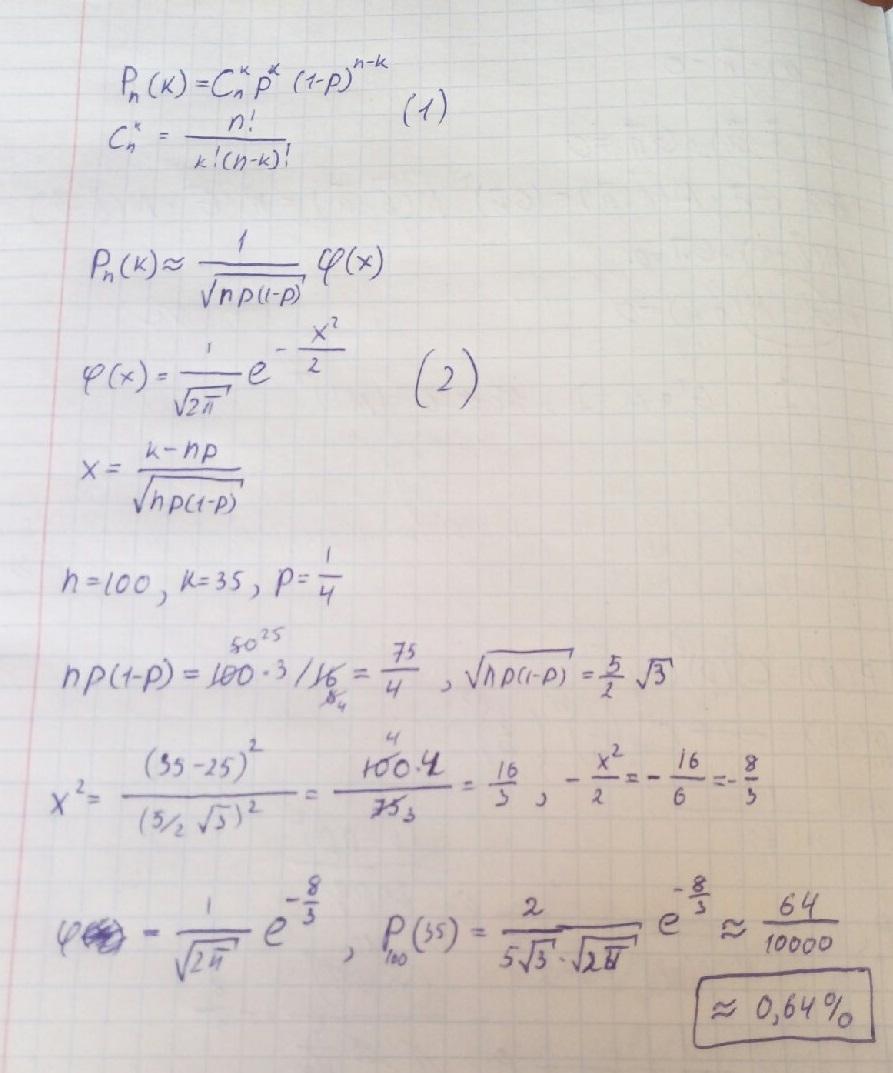 Pₙ(k) = Cₙᵏ pᵏ (1-p)ⁿ⁻ᵏ
(1)
Cₙᵏ = n! / k!(n-k)!
Pₙ(k) ≈ 1 / √(np(1-p)) φ(x)
φ(x) = 1/√(2π) e^(-x²/2)
(2)
x = (k-np) / √(np(1-p))
n=100, k=35, p=1/4
50 25
np(1-p) = 100·3/16 = 75/4, √(np(1-p)) = 5/2 √3
8 4
4
x² = (35-25)² / (5/2 √3)² = 100·4 / 75 3 = 16/3, -x²/2 = -16/6 = -8/3
φ = 1/√(2π) e^(-8/3), P₁₀₀(35) = 2 / (5√3·√(2π)) e^(-8/3) ≈ 64/10000
≈ 0,64%